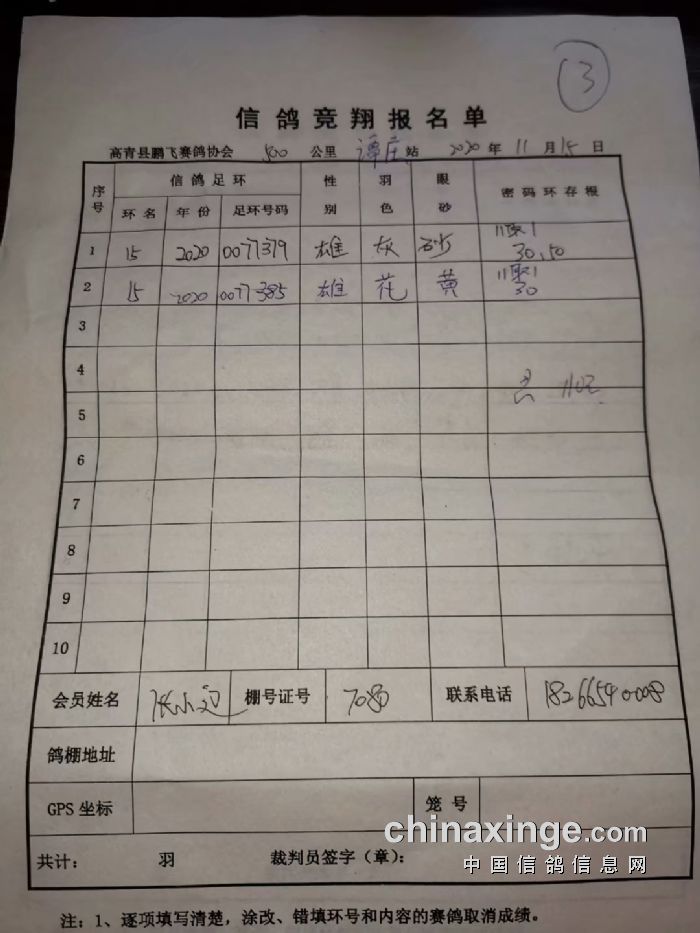 13
信鸽竞翔报名单
高青县鹏飞赛鸽协会 500 公里 谭庄 站 2020 年 11 月 15 日
序号 信鸽足环 性别 羽色 眼砂 密码环存根
环名 年份 足环号码
1 15 2020 0077379 雄 灰 砂 30.50
2 15 2020 0077385 雄 花 黄 30
3
4
5
6
7
8
9
10
会员姓名 棚号证号 7080 联系电话 18266540008
鸽棚地址
GPS坐标 笼号
共计: 羽 裁判员签字(章):
chinaxinge.com
中国信鸽信息网
注:1、逐项填写清楚,涂改、错填环号和内容的赛鸽取消成绩。